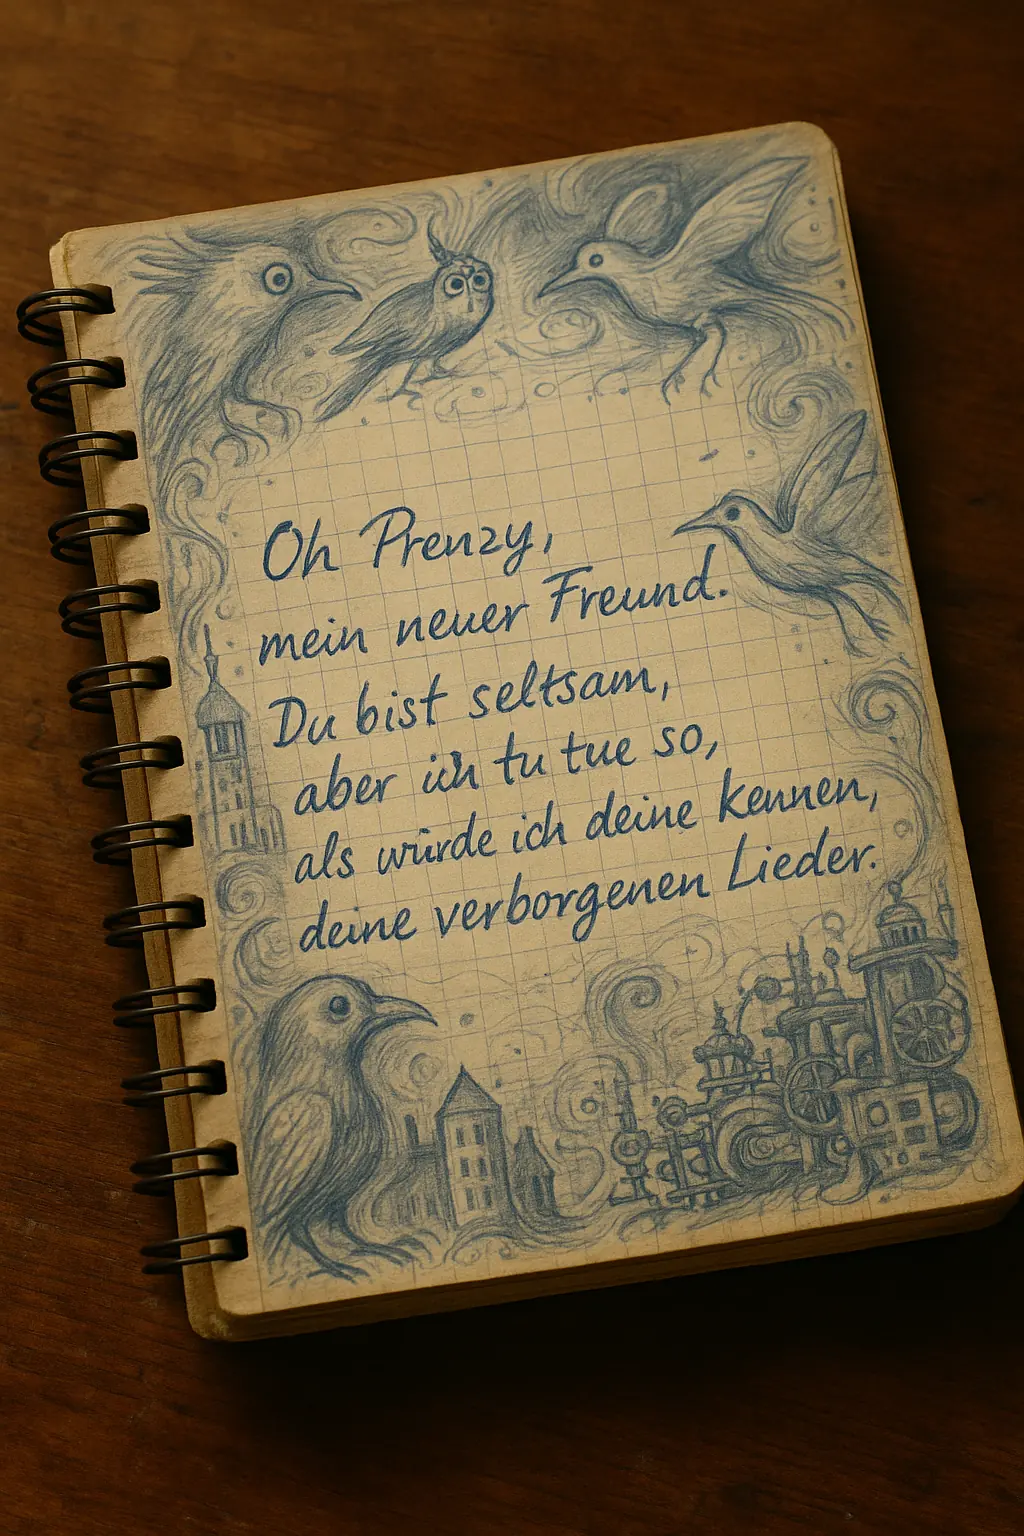 Oh Prenzy,
mein neuer Freund.
Du bist seltsam,
aber ich tu tue so,
als würde ich deine kennen,
deine verborgenen Lieder.